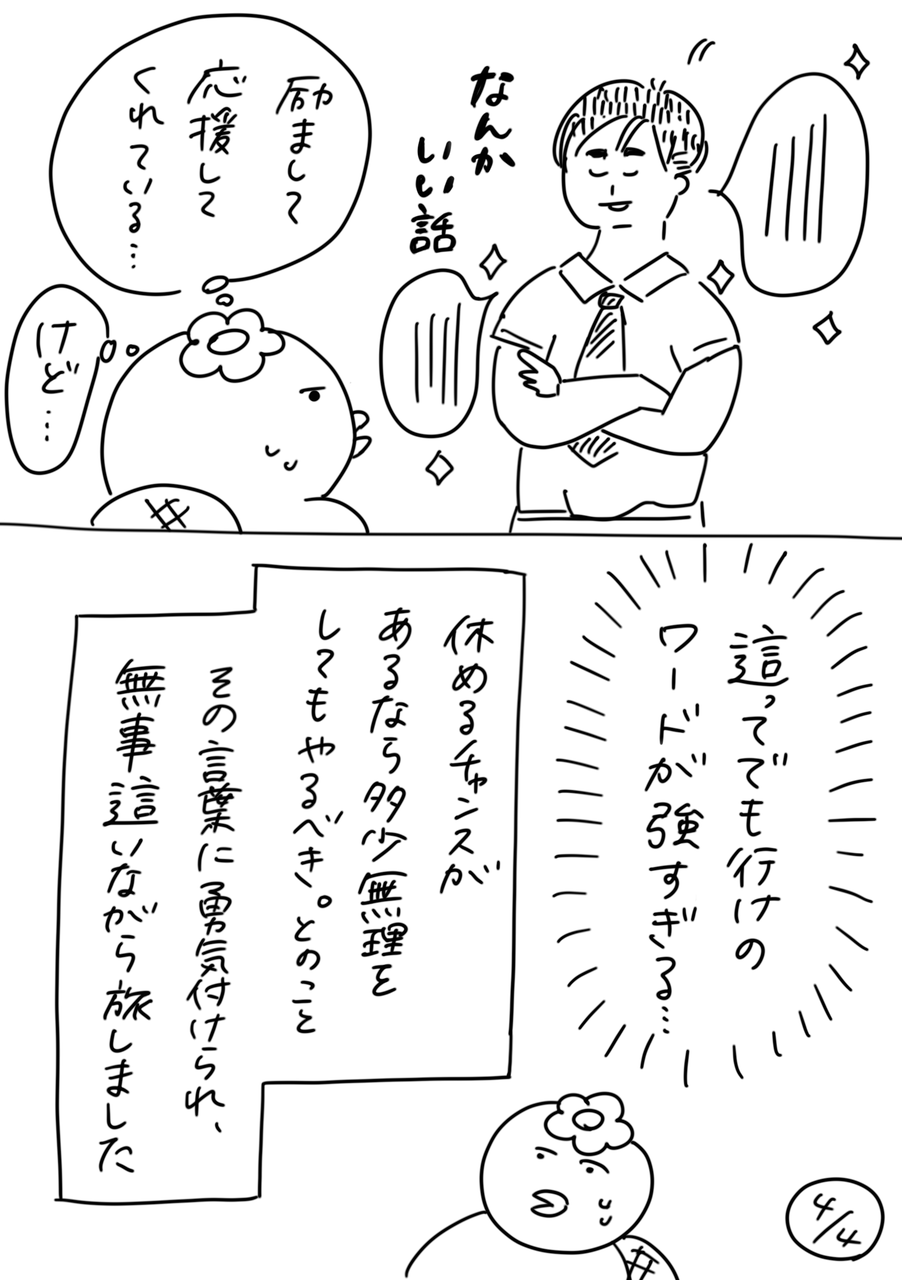 なんか
いい話
励まして
応援して
くれている…
けど…
這ってでも行けの
ワードが強すぎる…
休めるチャンスが
あるなら多少無理を
してもやるべき。とのこと
その言葉に勇気付けられ、
無事這いながら旅しました
4/4